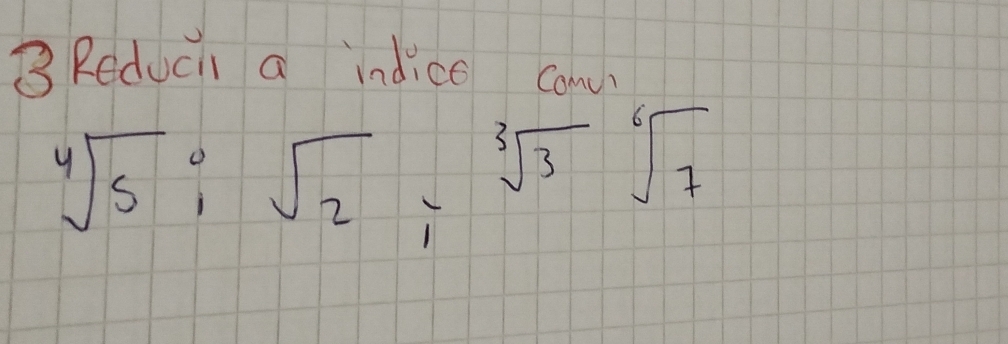 3 Reducir a indice comun
⁴√5 ; √2 ; ³√3 ⁶√7